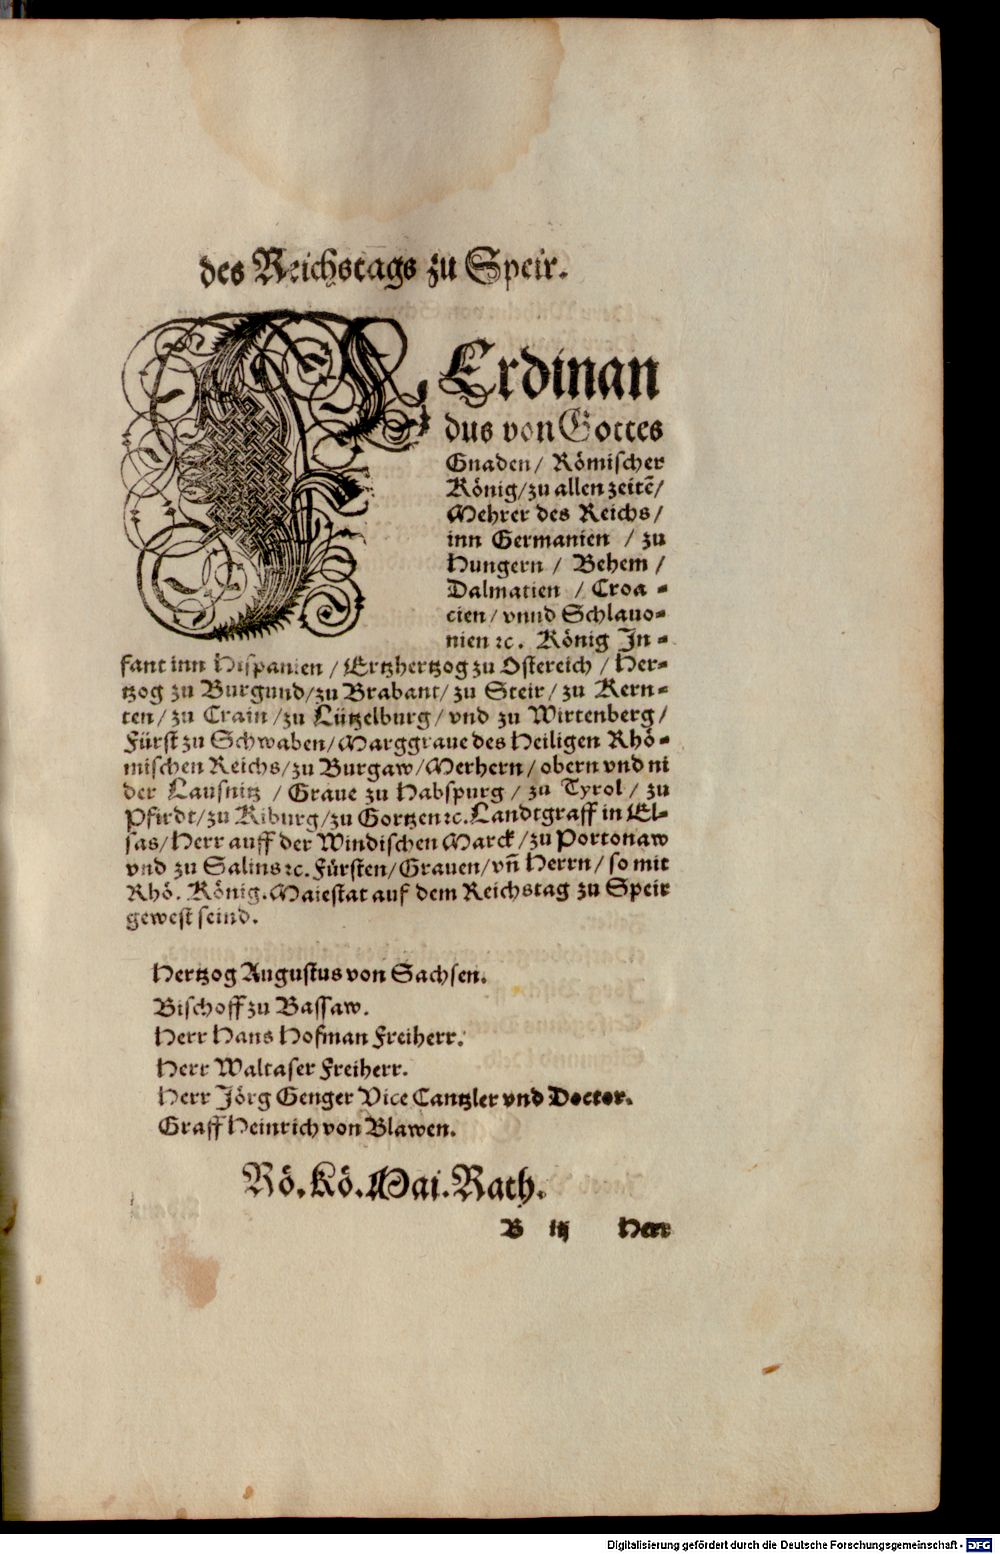 des Reichstags zu Speir.
FErdinan
dus von Gottes
Gnaden / Römischer
König / zu allen zeitē /
Mehrer des Reichs /
inn Germanien / zu
Hungern / Behem /
Dalmatien / Croa-
cien / vnnd Schlauo-
nien ꝛc. König In-
fant inn Hispanien / Ertzhertzog zu Ostereich / Her-
tzog zu Burgund / zu Brabant / zu Steir / zu Kern-
ten / zu Crain / zu Lützelburg / vnd zu Wirtenberg /
Fürst zu Schwaben / Marggraue des Heiligen Rhö-
mischen Reichs / zu Burgaw / Merhern / obern vnd ni
der Lausnitz / Graue zu Habspurg / zu Tyrol / zu
Pfirdt / zu Kiburg / zu Gortzen ꝛc. Landtgraff in El-
sas / Herr auff der Windischen Marck / zu Portonaw
vnd zu Salins ꝛc. Fürsten / Grauen / vñ Herrn / so mit
Rhö. König. Maiestat auf dem Reichstag zu Speir
gewest seind.
Hertzog Augustus von Sachsen.
Bischoff zu Bassaw.
Herr Hans Hofman Freiherr.
Herr Waltaser Freiherr.
Herr Jörg Genger Vice Cantzler vnd Doctor.
Graff Heinrich von Blawen.
Rö. Kö. Mai. Rath.
B iij Herr
Digitalisierung gefördert durch die Deutsche Forschungsgemeinschaft - DFG